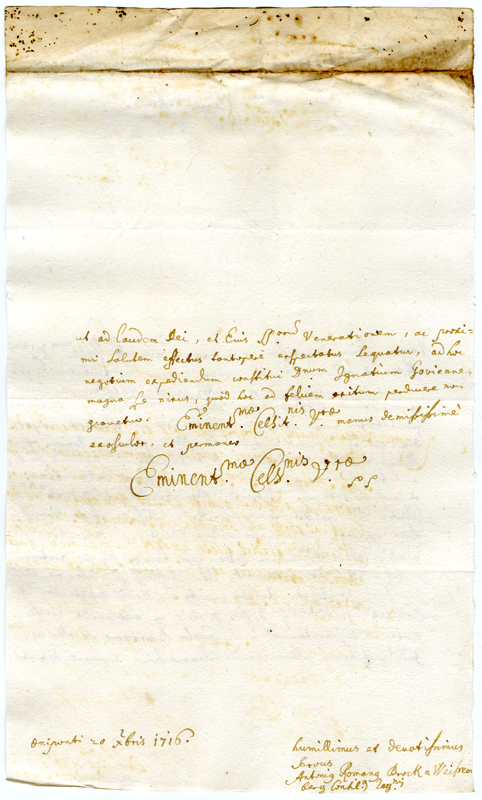 ut ad laudem Dei, et Eius SSorum Venerationem, ac proxi=
mi salutem effectus tantopere exspectatus sequatur, ad hoc
negotium expediendum constitui Dnum Ignatium
magna quod hoc ad felicem exitum perducere non
gravetur. Eminentmæ Celsit.nis Vræ manus demississimè
exosculor, et permaneo
Eminentmæ Cels.nis Vræ
Œniponti 20 Xbris 1716.
humillimus et devotissimus
servus
Antonius Romanus Brock a Weissen
berg